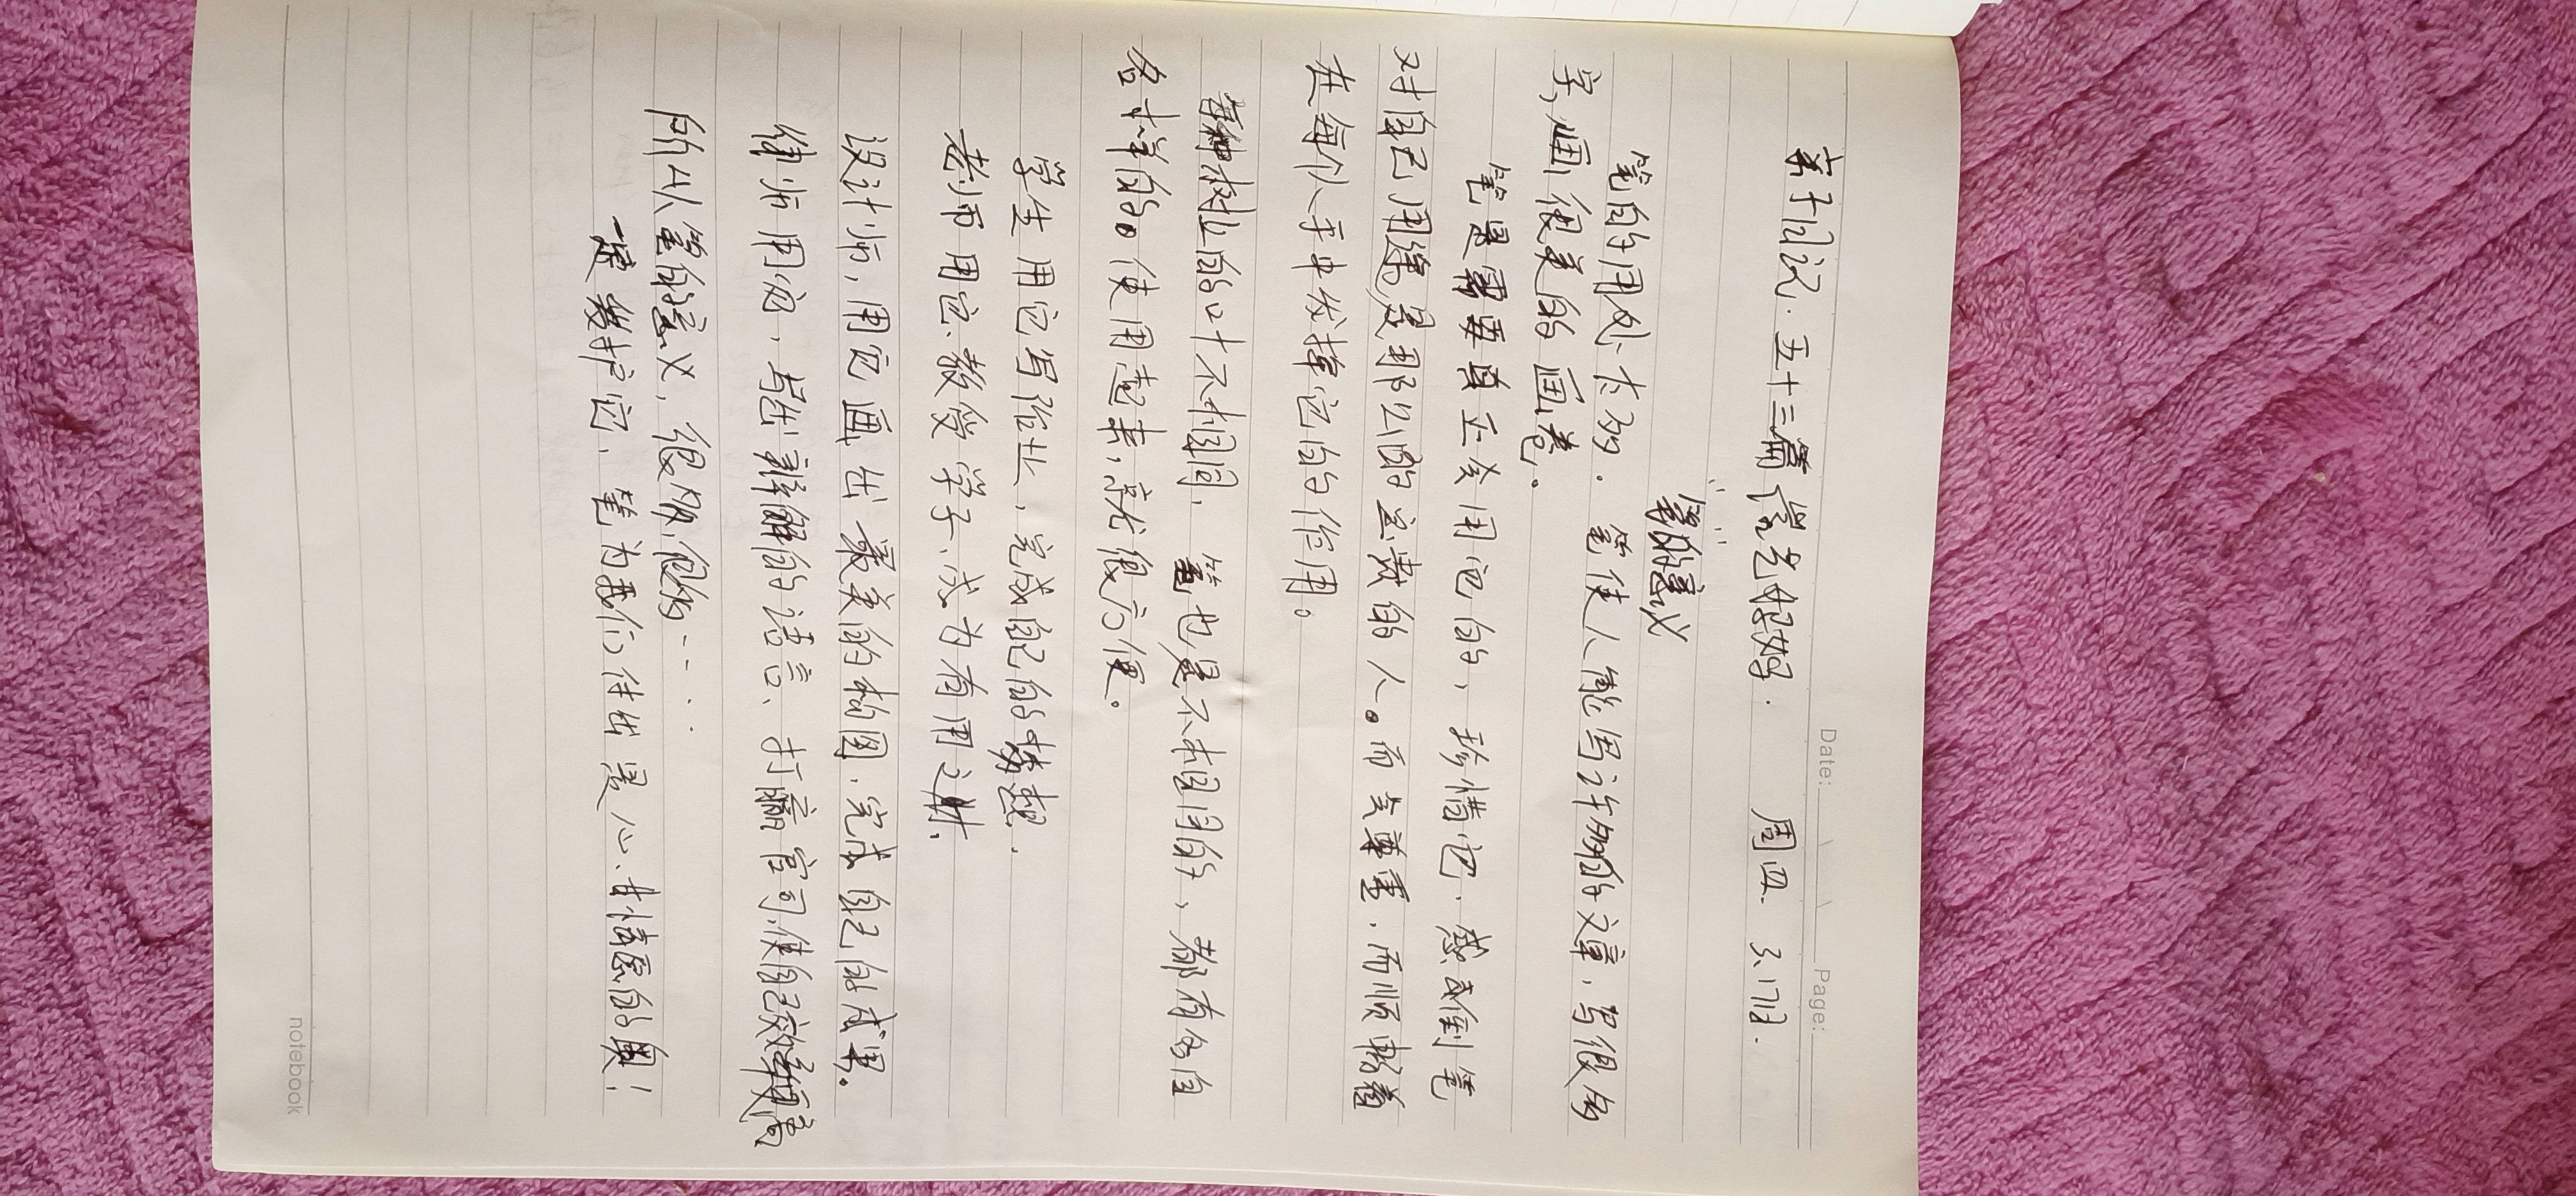 Date: Page:
亲子日记·五十三篇 常艺好好. 周四 3.17日.
"笔"的意义
笔的用处太多. 笔使人能写许多的文章, 写很多
字, 画很美的画卷。
笔是需要真正会用它的, 珍惜它. 感到笔
对自己用缘是那么的宝贵的人。而会尊重, 而顺路着
进每个人手中发挥它的作用。
每种树上的叶不相同, 笔也是不相同的, 都有各自
各样的。使用起来, 就很方便。
学生用它写作业, 完成自己的梦想.
老师用它教受学子, 成为有用之材.
设计师, 用它画出最美的构图. 完成自己的成果。
律师用它, 写出辩解的语言、打赢官司, 使自己效率
所以笔的意义, 很多很多....
一定爱护它, 笔为我们付出是心甘情愿的奥!
notebook